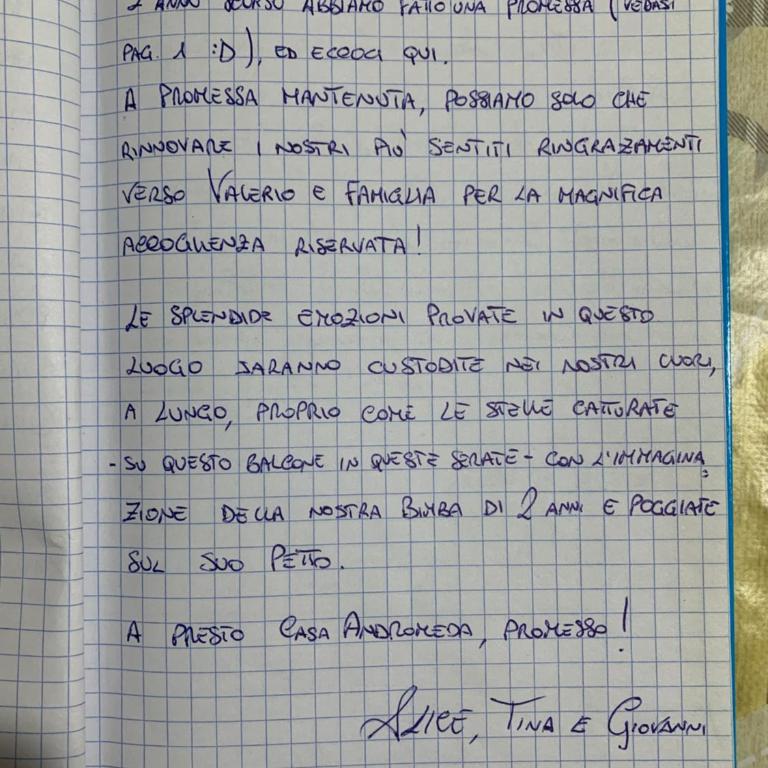 L'ANNO SCORSO ABBIAMO FATTO UNA PROMESSA (VEDASI
PAG. 1 :D), ED ECCOCI QUI.
A PROMESSA MANTENUTA, POSSIAMO SOLO CHE
RINNOVARE I NOSTRI PIÙ SENTITI RINGRAZAMENTI
VERSO VALERIO E FAMIGLIA PER LA MAGNIFICA
ACCOGLIENZA RISERVATA!
LE SPLENDIDE EMOZIONI PROVATE IN QUESTO
LUOGO SARANNO CUSTODITE NEI NOSTRI CUORI,
A LUNGO, PROPRIO COME LE STELLE CATTURATE
- SU QUESTO BALCONE IN QUESTE SERATE - CON L'IMMAGINA=
ZIONE DELLA NOSTRA BIMBA DI 2 ANNI E POGGIATE
SUL SUO PETTO.
A PRESTO CASA ANDROMEDA, PROMESSO!
ALICE, TINA E GIOVANNI